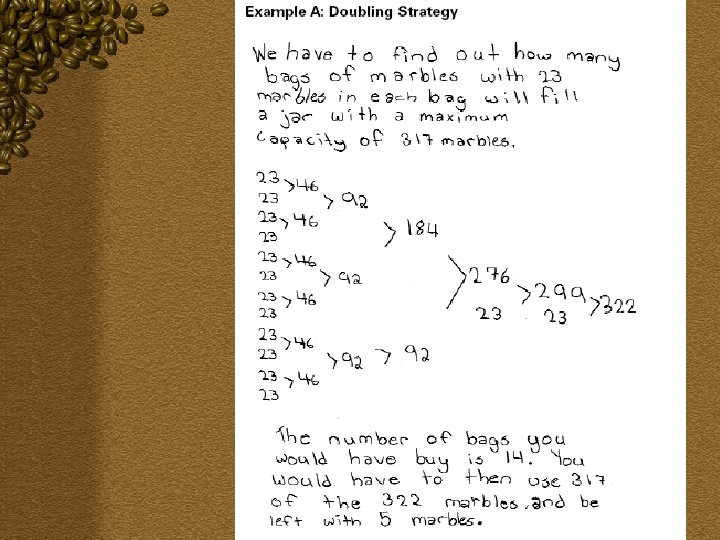 Example A: Doubling Strategy
We have to find out how many
bags of marbles with 23
marbles in each bag will fill
a jar with a maximum
capacity of 317 marbles.
23 > 46
23 > 92
23 > 46
23 > 184
23 > 46
23 > 92 > 276 > 299 > 322
23 > 46 23 23
23
23 > 46
23 > 92 > 92
23 > 46
23
The number of bags you
would have buy is 14. You
would have to then use 317
of the 322 marbles, and be
left with 5 marbles.